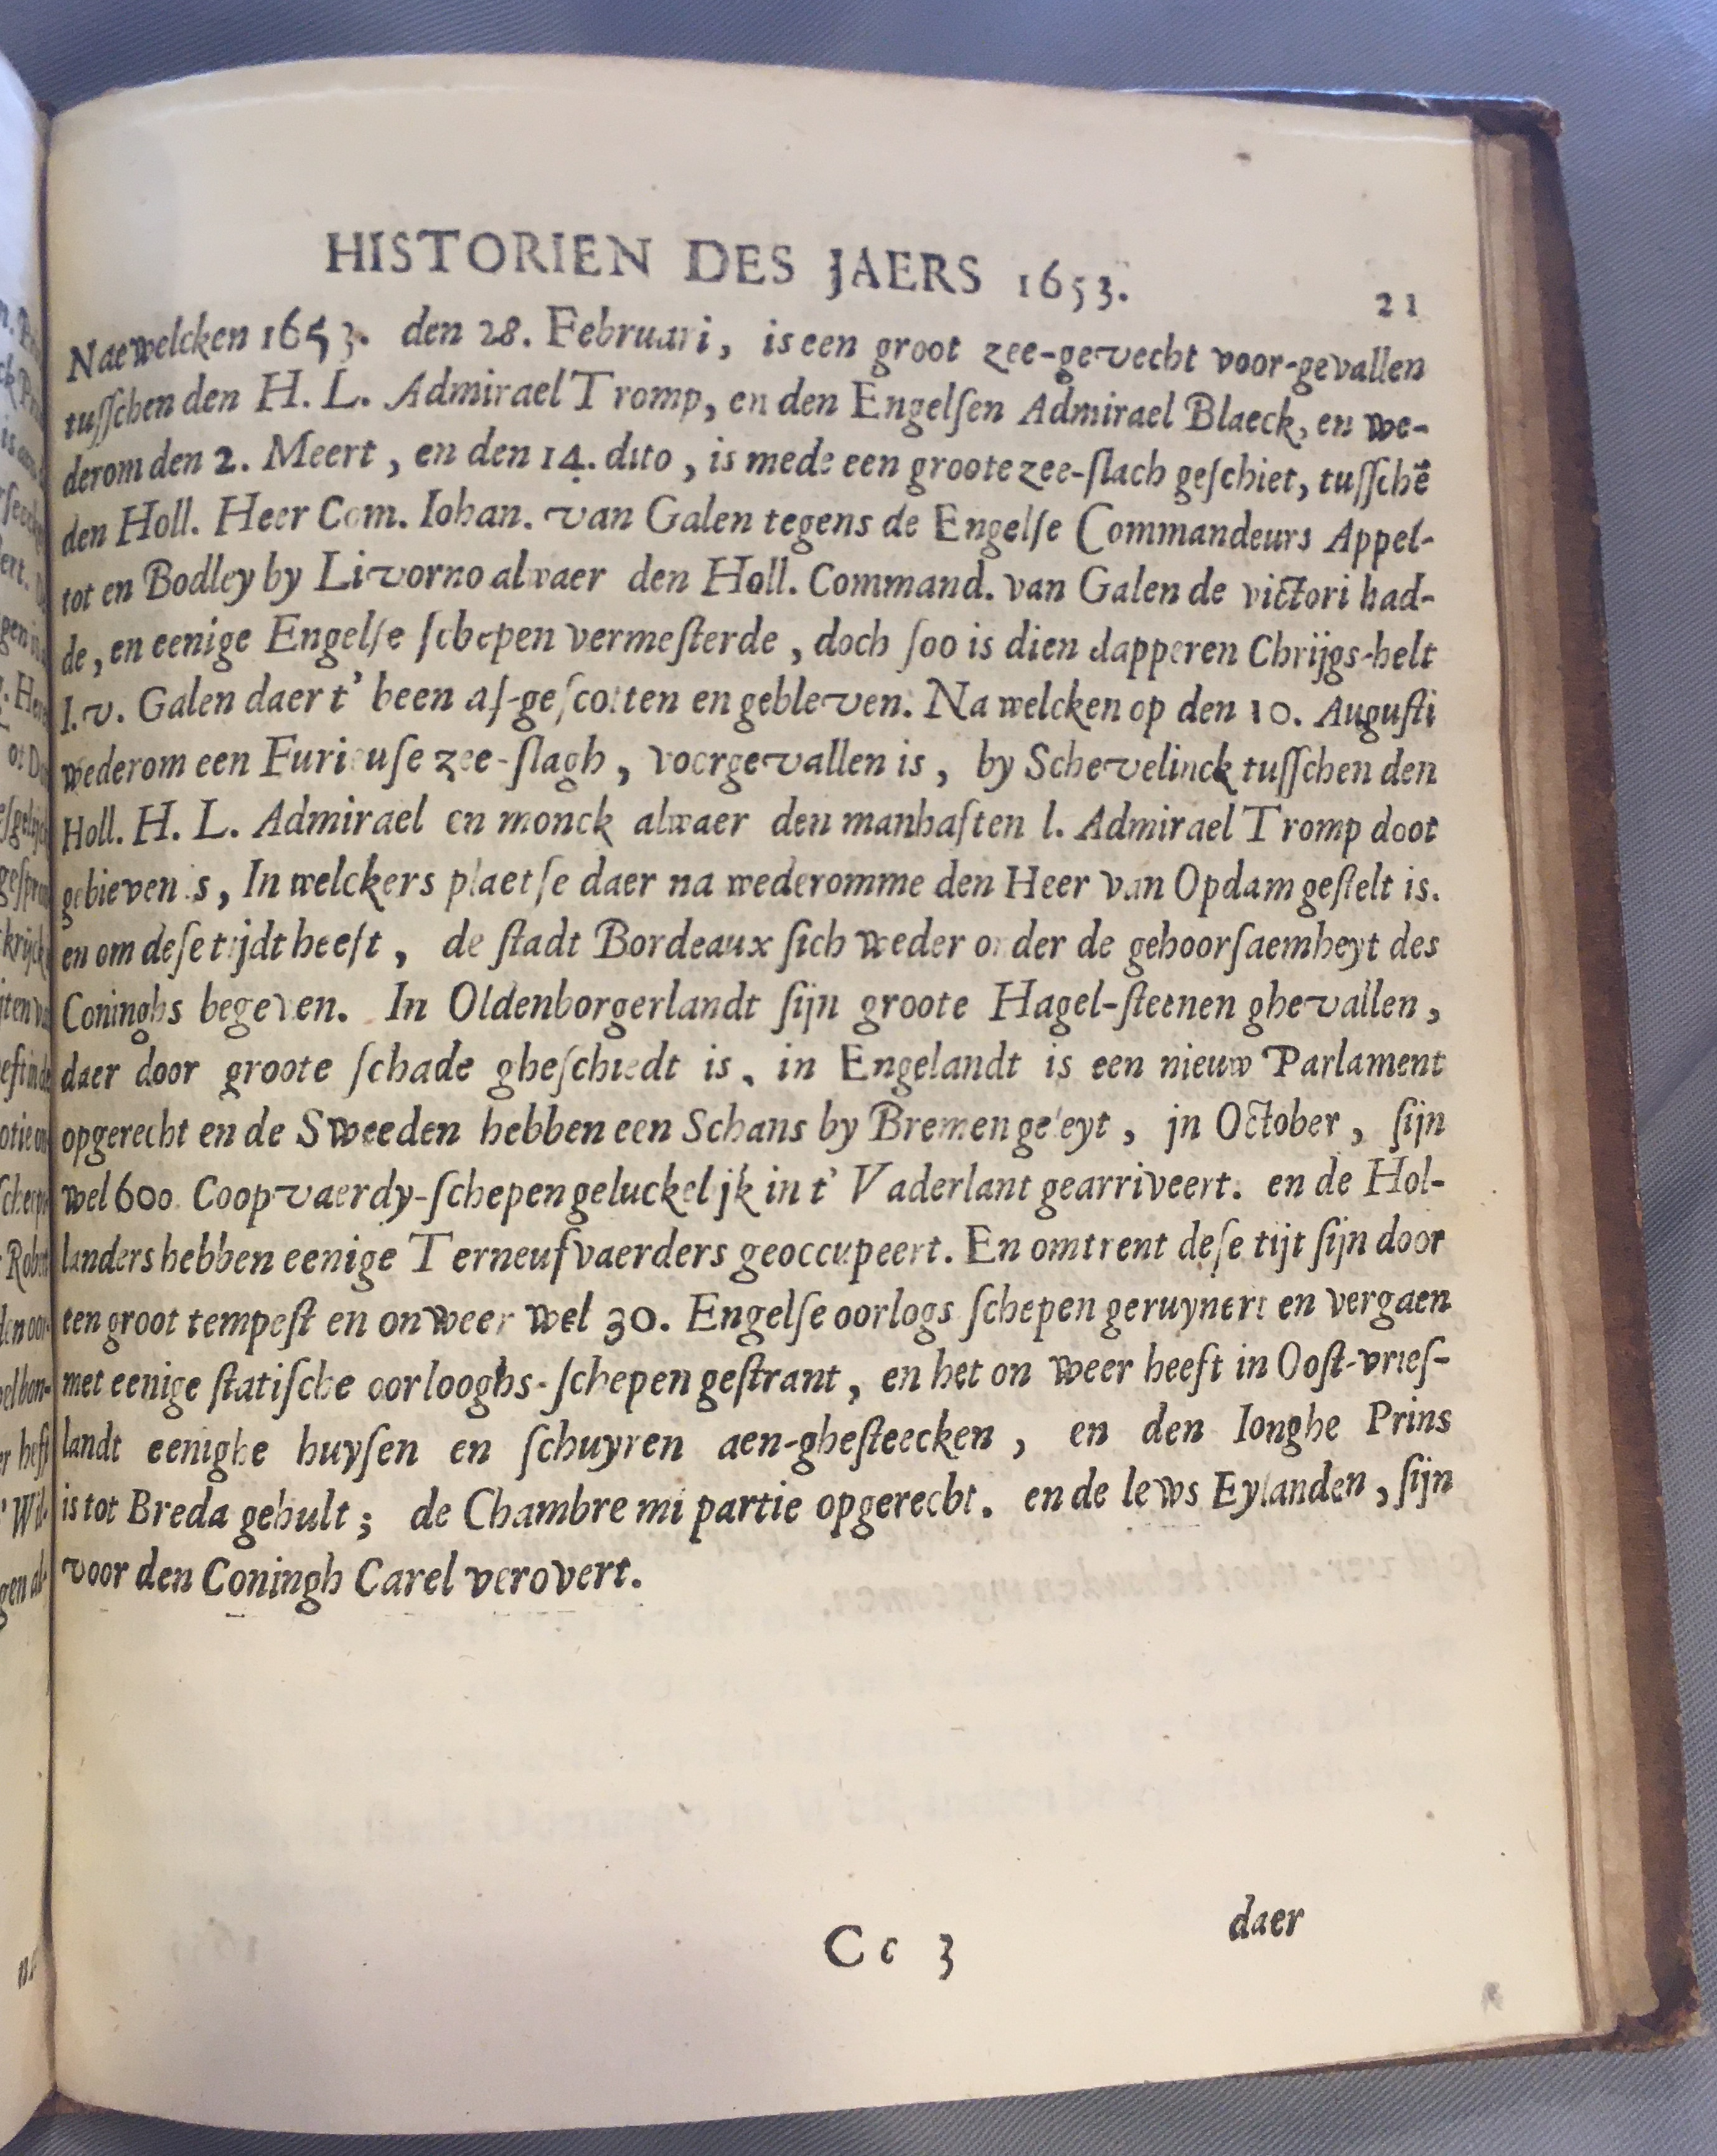 HISTORIEN DES JAERS 1653. 21
Nae welcken 1653. den 28. Februari, is een groot zee-gevecht voor-gevallen
tuſſchen den H. L. Admirael Tromp, en den Engelſen Admirael Blaeck, en we-
derom den 2. Meert, en den 14. dito, is mede een groote zee-ſlach geſchiet, tuſſchē
den Holl. Heer Com. Iohan. van Galen tegens de Engelſe Commandeurs Appel-
tot en Bodley by Livorno alwaer den Holl. Command. van Galen de victori had-
de, en eenige Engelſe ſchepen vermeſterde, doch ſoo is dien dapperen Chrijgs-helt
I. v. Galen daer t' been af-geſcotten en gebleven. Na welcken op den 10. Auguſti
wederom een Furieuſe zee-ſlagh, voorgevallen is, by Schevelinck tuſſchen den
Holl. H. L. Admirael en monck alwaer den manhaften l. Admirael Tromp doot
gebleven is, In welckers plaetſe daer na wederomme den Heer van Opdam geſtelt is.
en om deſe tijdt heeft, de ſtadt Bordeaux ſich weder onder de gehoorſaemheyt des
Coninghs begeven. In Oldenborgerlandt ſijn groote Hagel-ſteenen ghevallen,
daer door groote ſchade gheſchiedt is, in Engelandt is een nieuw Parlament
opgerecht en de Sweeden hebben een Schans by Bremen geleyt, jn October, ſijn
wel 600. Coopvaerdy-ſchepen geluckelijk in t' Vaderlant gearriveert. en de Hol-
landers hebben eenige Terneufvaerders geoccupeert. En omtrent deſe tijt ſijn door
een groot tempeſt en onweer wel 30. Engelſe oorlogs ſchepen geruynert en vergaen
met eenige ſtatiſche oorlooghs-ſchepen geſtrant, en het on weer heeft in Ooſt-vrieſ-
landt eenighe huyſen en ſchuyren aen-gheſteecken, en den Ionghe Prins
is tot Breda gehult; de Chambre mi partie opgerecht. en de lews Eylanden, ſijn
voor den Coningh Carel verovert.
Cc 3 daer